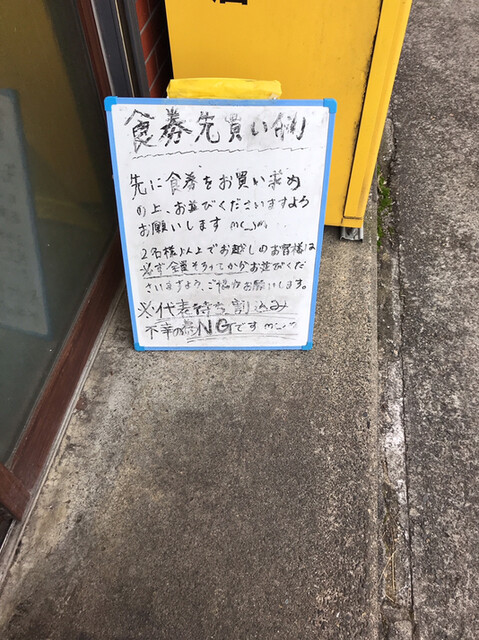 食券先買い制
先に食券をお買い求め
の上、お並びくださいますよう
お願いします m(__)m
2名様以上でお越しのお客様は
必ず全員そろってからお並びくだ
さいますよう、ご協力お願いします。
※代表待ち、割込み
NGです m(__)m